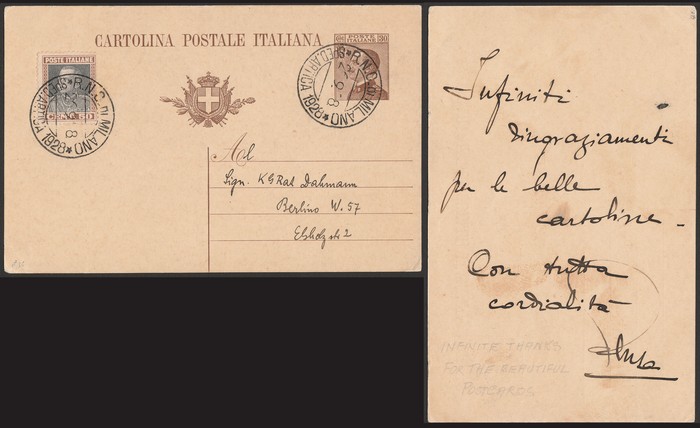 CARTOLINA POSTALE ITALIANA
POSTE ITALIANE
CENT. 50
POSTE
ITALIANE
30
R.N.C. DI MILANO
SPED. ARTICA 1928
R.N.C. DI MILANO
SPED. ARTICA 1928
A
Sign. K G Rat Dahmann
Berlino W. 57
Elsholzstr 2
Infiniti
ringraziamenti
per le belle
cartoline -
Con tutta
cordialità
INFINITE THANKS
FOR THE BEAUTIFUL
POSTCARDS